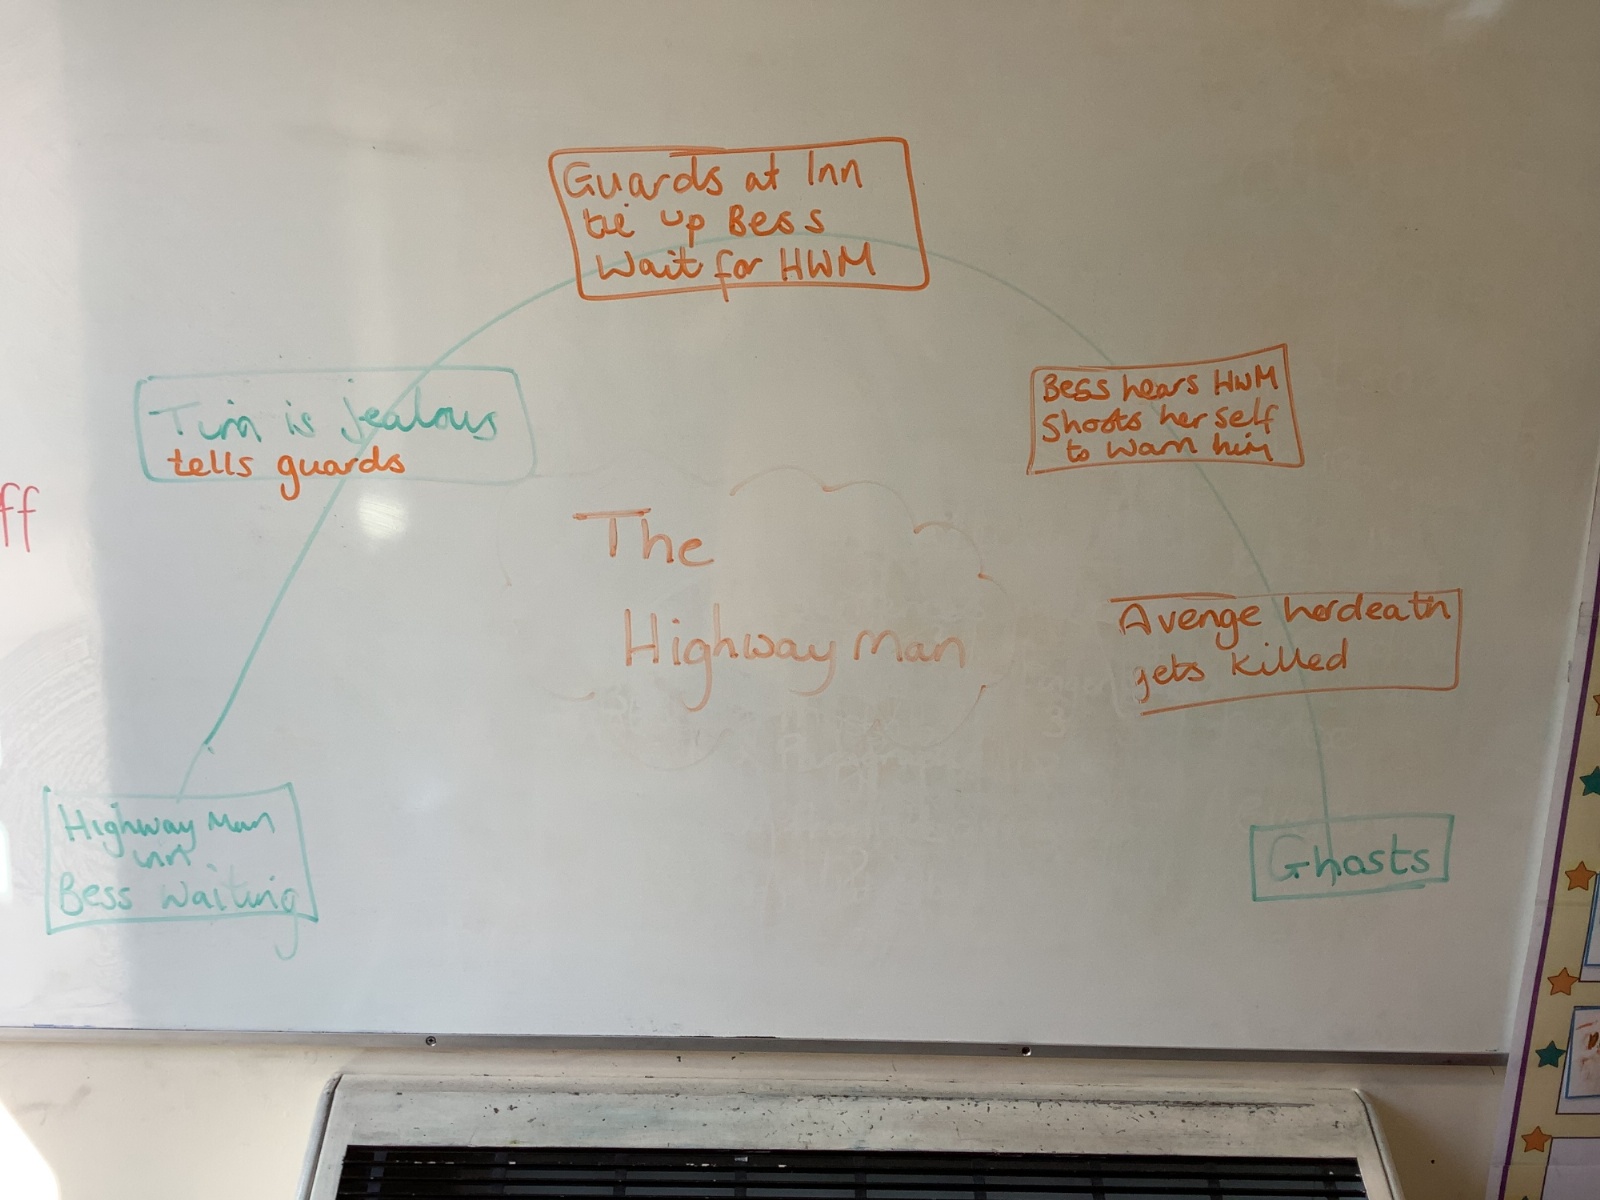 Guards at Inn
tie up Bess
Wait for HWM
Tim is jealous
tells guards
Bess hears HWM
Shoots herself
to warn him
ff
The
Highway man
Avenge her death
gets killed
Highway man
inn
Bess waiting
Ghosts